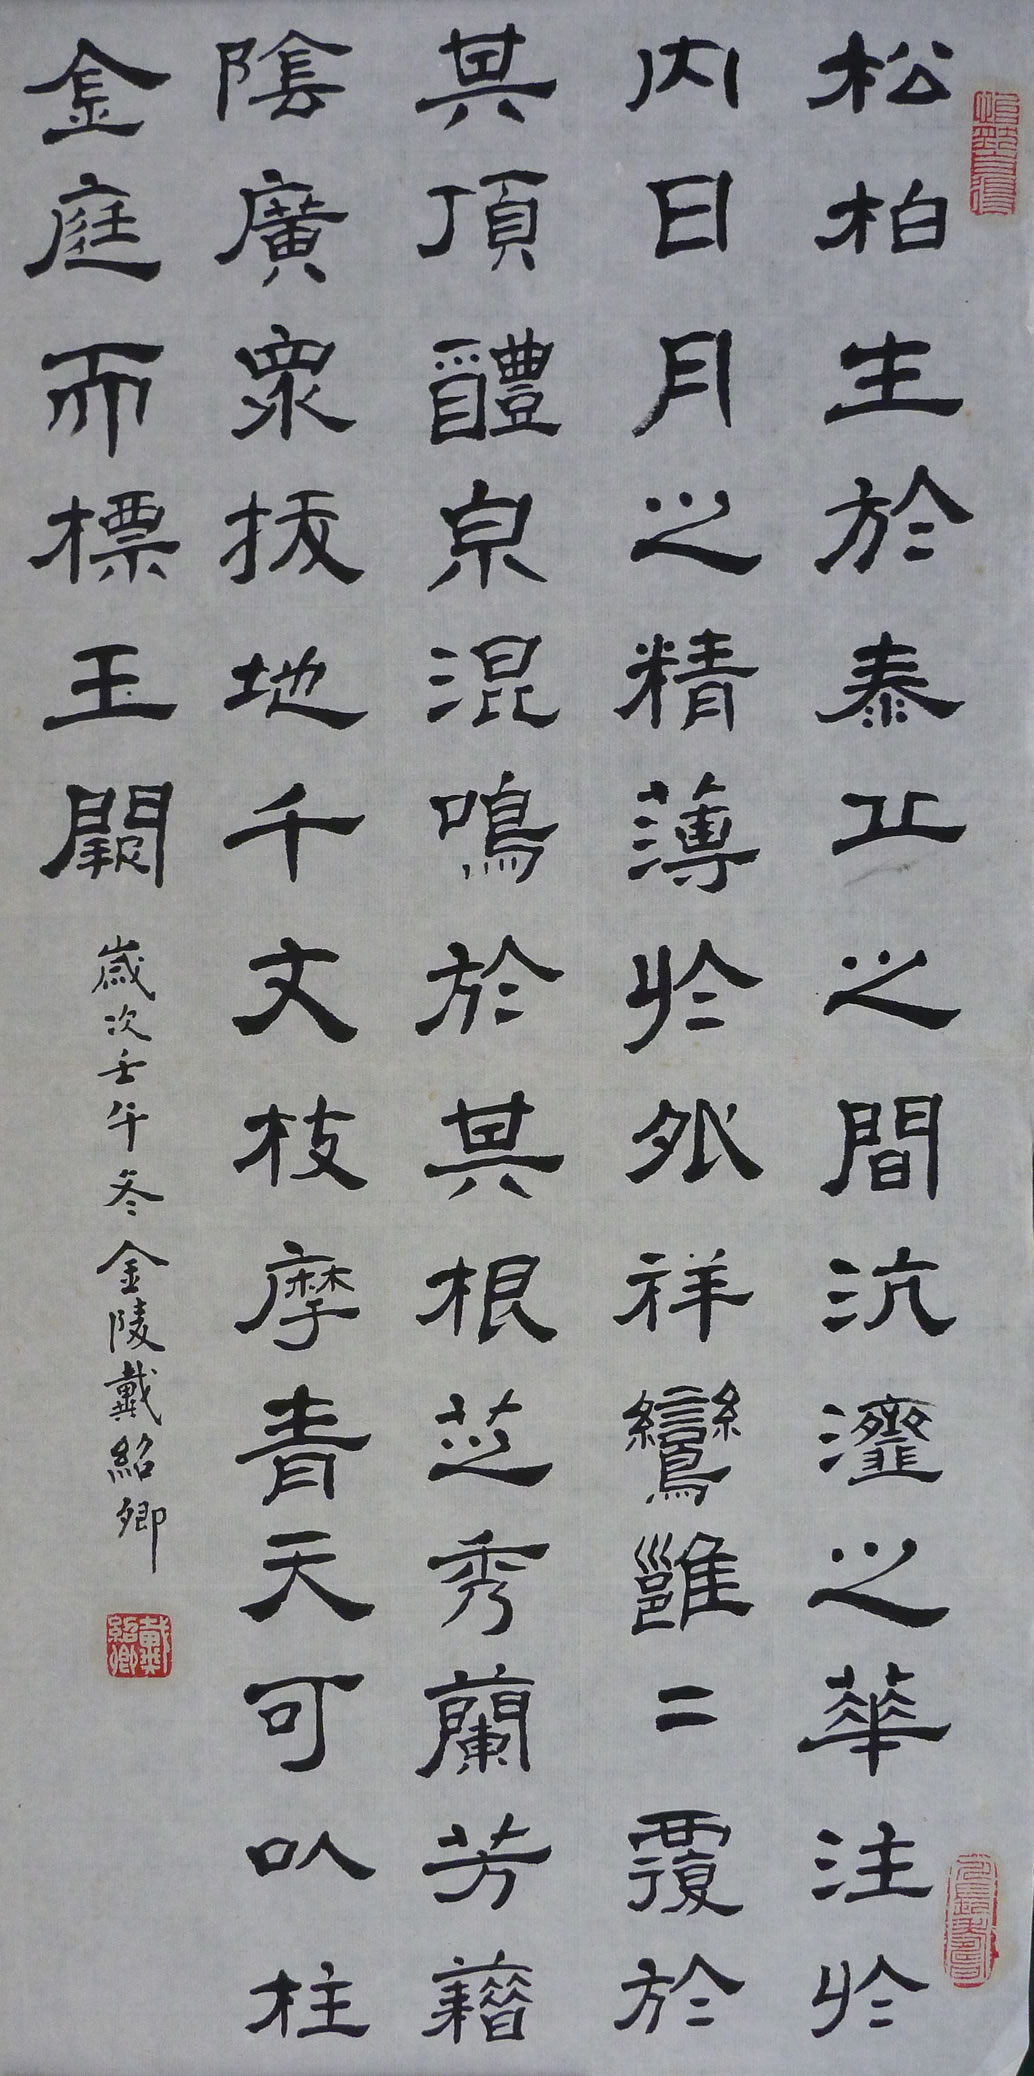 松柏生於泰丘之間沆瀣之華注於
内日月之精薄於外祥鸞雝二覆於
其頂醴泉混鳴於其根芝秀蘭芳藉
陰廣衆拔地千丈枝摩青天可以柱
金庭而標玉闕
歲次壬午冬金陵戴紹卿
戴紹卿